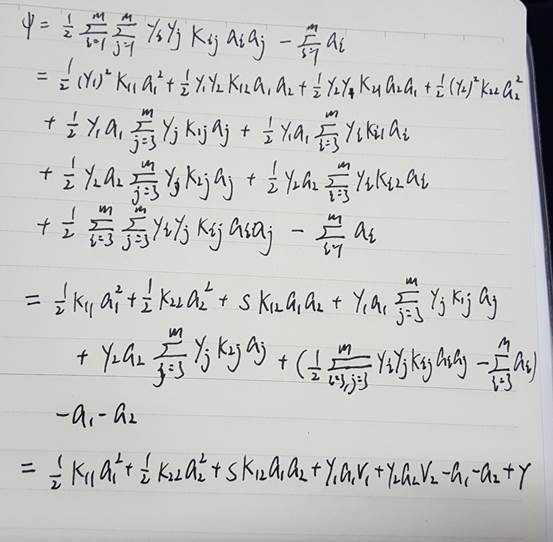 ψ = ½ Σ_{i=1}^{m} Σ_{j=1}^{m} y_i y_j K_{ij} a_i a_j − Σ_{i=1}^{m} a_i
= ½ (y_1)² K_{11} a_1² + ½ y_1 y_2 K_{12} a_1 a_2 + ½ y_2 y_1 K_{21} a_2 a_1 + ½ (y_2)² K_{22} a_2²
+ ½ y_1 a_1 Σ_{j=3}^{m} y_j K_{1j} a_j + ½ y_1 a_1 Σ_{i=3}^{m} y_i K_{i1} a_i
+ ½ y_2 a_2 Σ_{j=3}^{m} y_j K_{2j} a_j + ½ y_2 a_2 Σ_{i=3}^{m} y_i K_{i2} a_i
+ ½ Σ_{i=3}^{m} Σ_{j=3}^{m} y_i y_j K_{ij} a_i a_j − Σ_{i=1}^{m} a_i
= ½ K_{11} a_1² + ½ K_{22} a_2² + S K_{12} a_1 a_2 + y_1 a_1 Σ_{j=3}^{m} y_j K_{1j} a_j
+ y_2 a_2 Σ_{j=3}^{m} y_j K_{2j} a_j + (½ Σ_{i=3,j=3}^{m} y_i y_j K_{ij} a_i a_j − Σ_{i=3}^{m} a_i)
− a_1 − a_2
= ½ K_{11} a_1² + ½ K_{22} a_2² + S K_{12} a_1 a_2 + y_1 a_1 V_1 + y_2 a_2 V_2 − a_1 − a_2 + γ